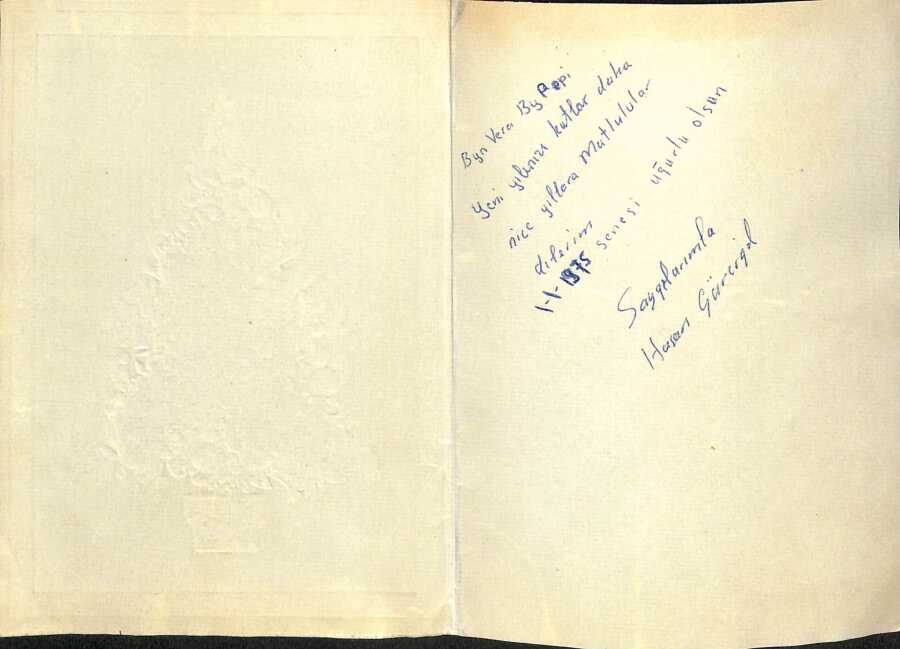 Byn Vera By Pepi
Yeni yılınızı kutlar daha
nice yıllara Mutlulular
dilerim
1-1-1975 senesi uğurlu olsun
Saygılarımla
Hasan